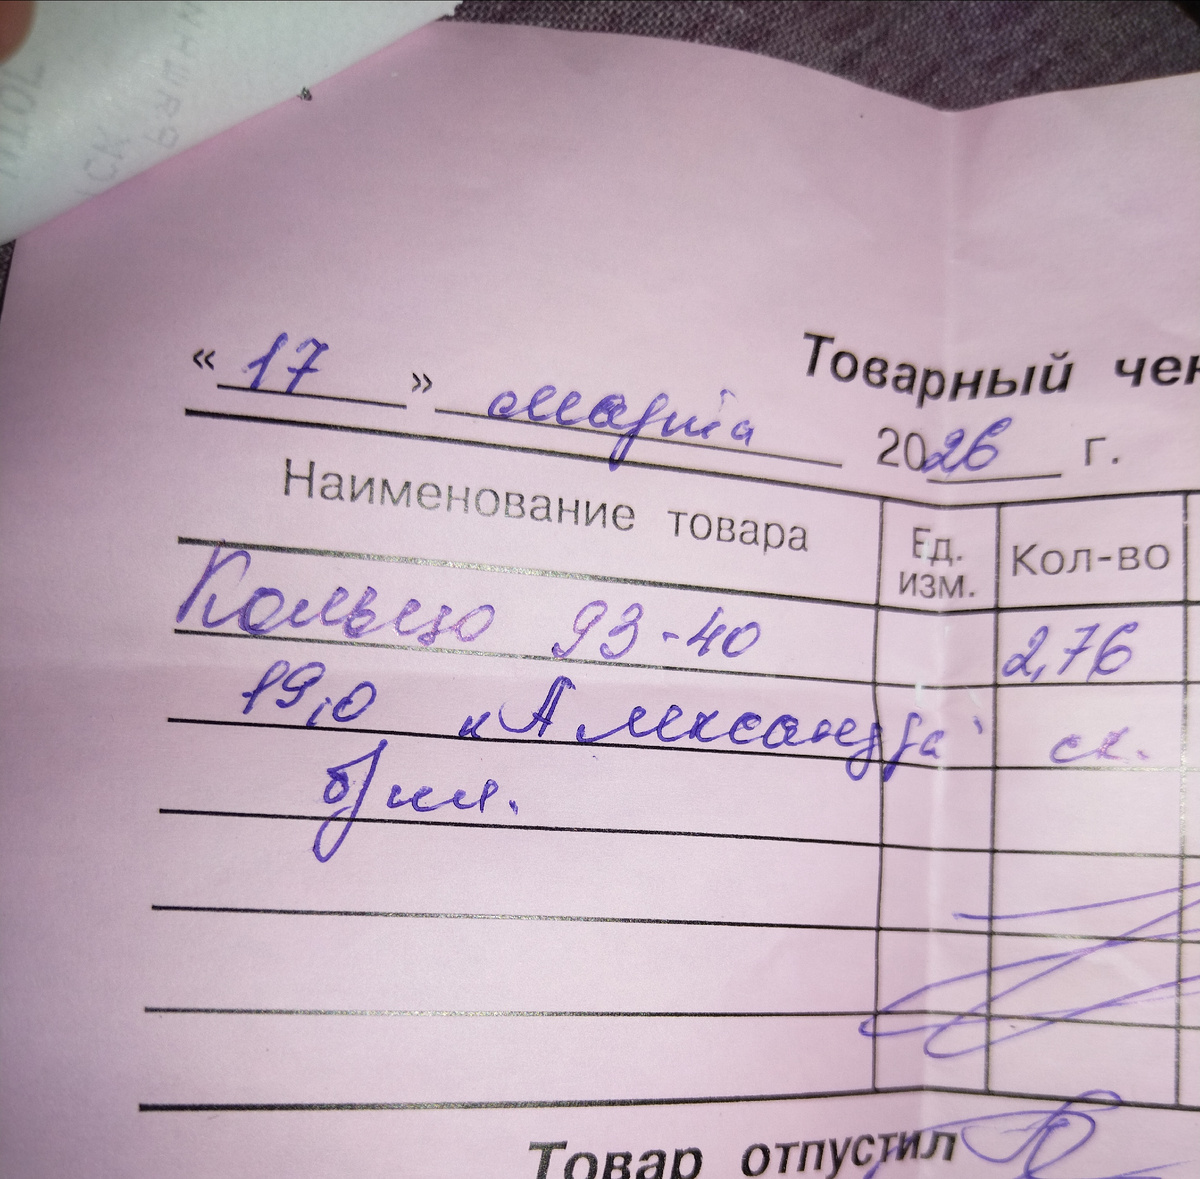 Товарный чек
« 17 » марта 2026 г.
Наименование товара Ед. изм. Кол-во
Кольцо 93-40 2,76
19,0 „Александра“ ск.
б/ил.
Товар отпустил